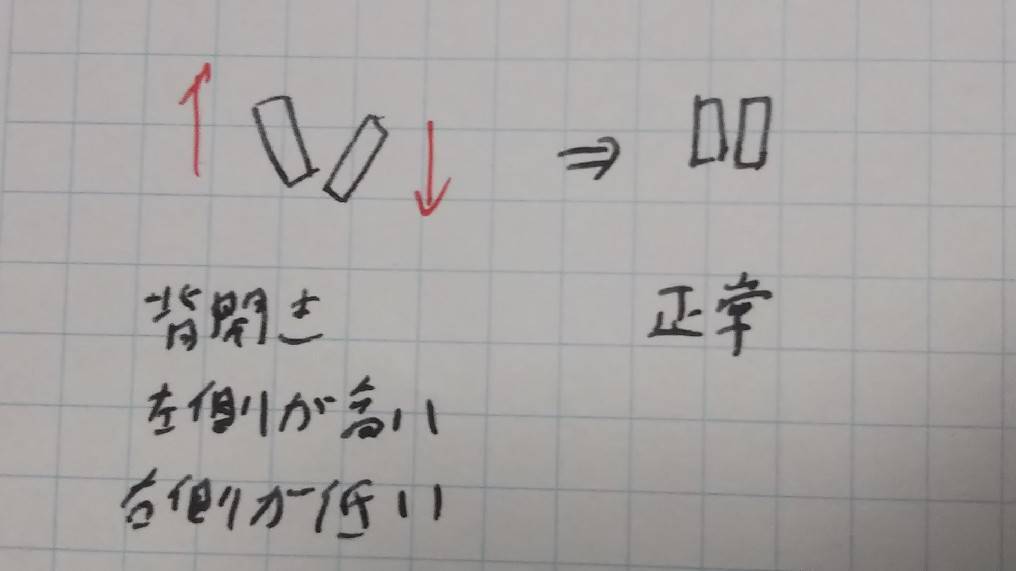 背開き
正常
左側が高い
右側が低い